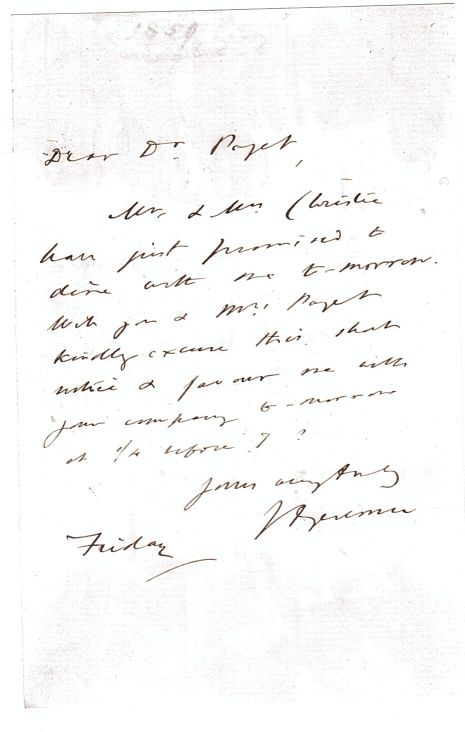 1850
Dear Dr Paget,
Mr. & Mrs Christie
have just promised to
dine with me to-morrow.
Will you & Mrs. Paget
kindly excuse this short
notice & favour me with
your company to-morrow
at 1/4 before 7?
Yours very truly
Friday